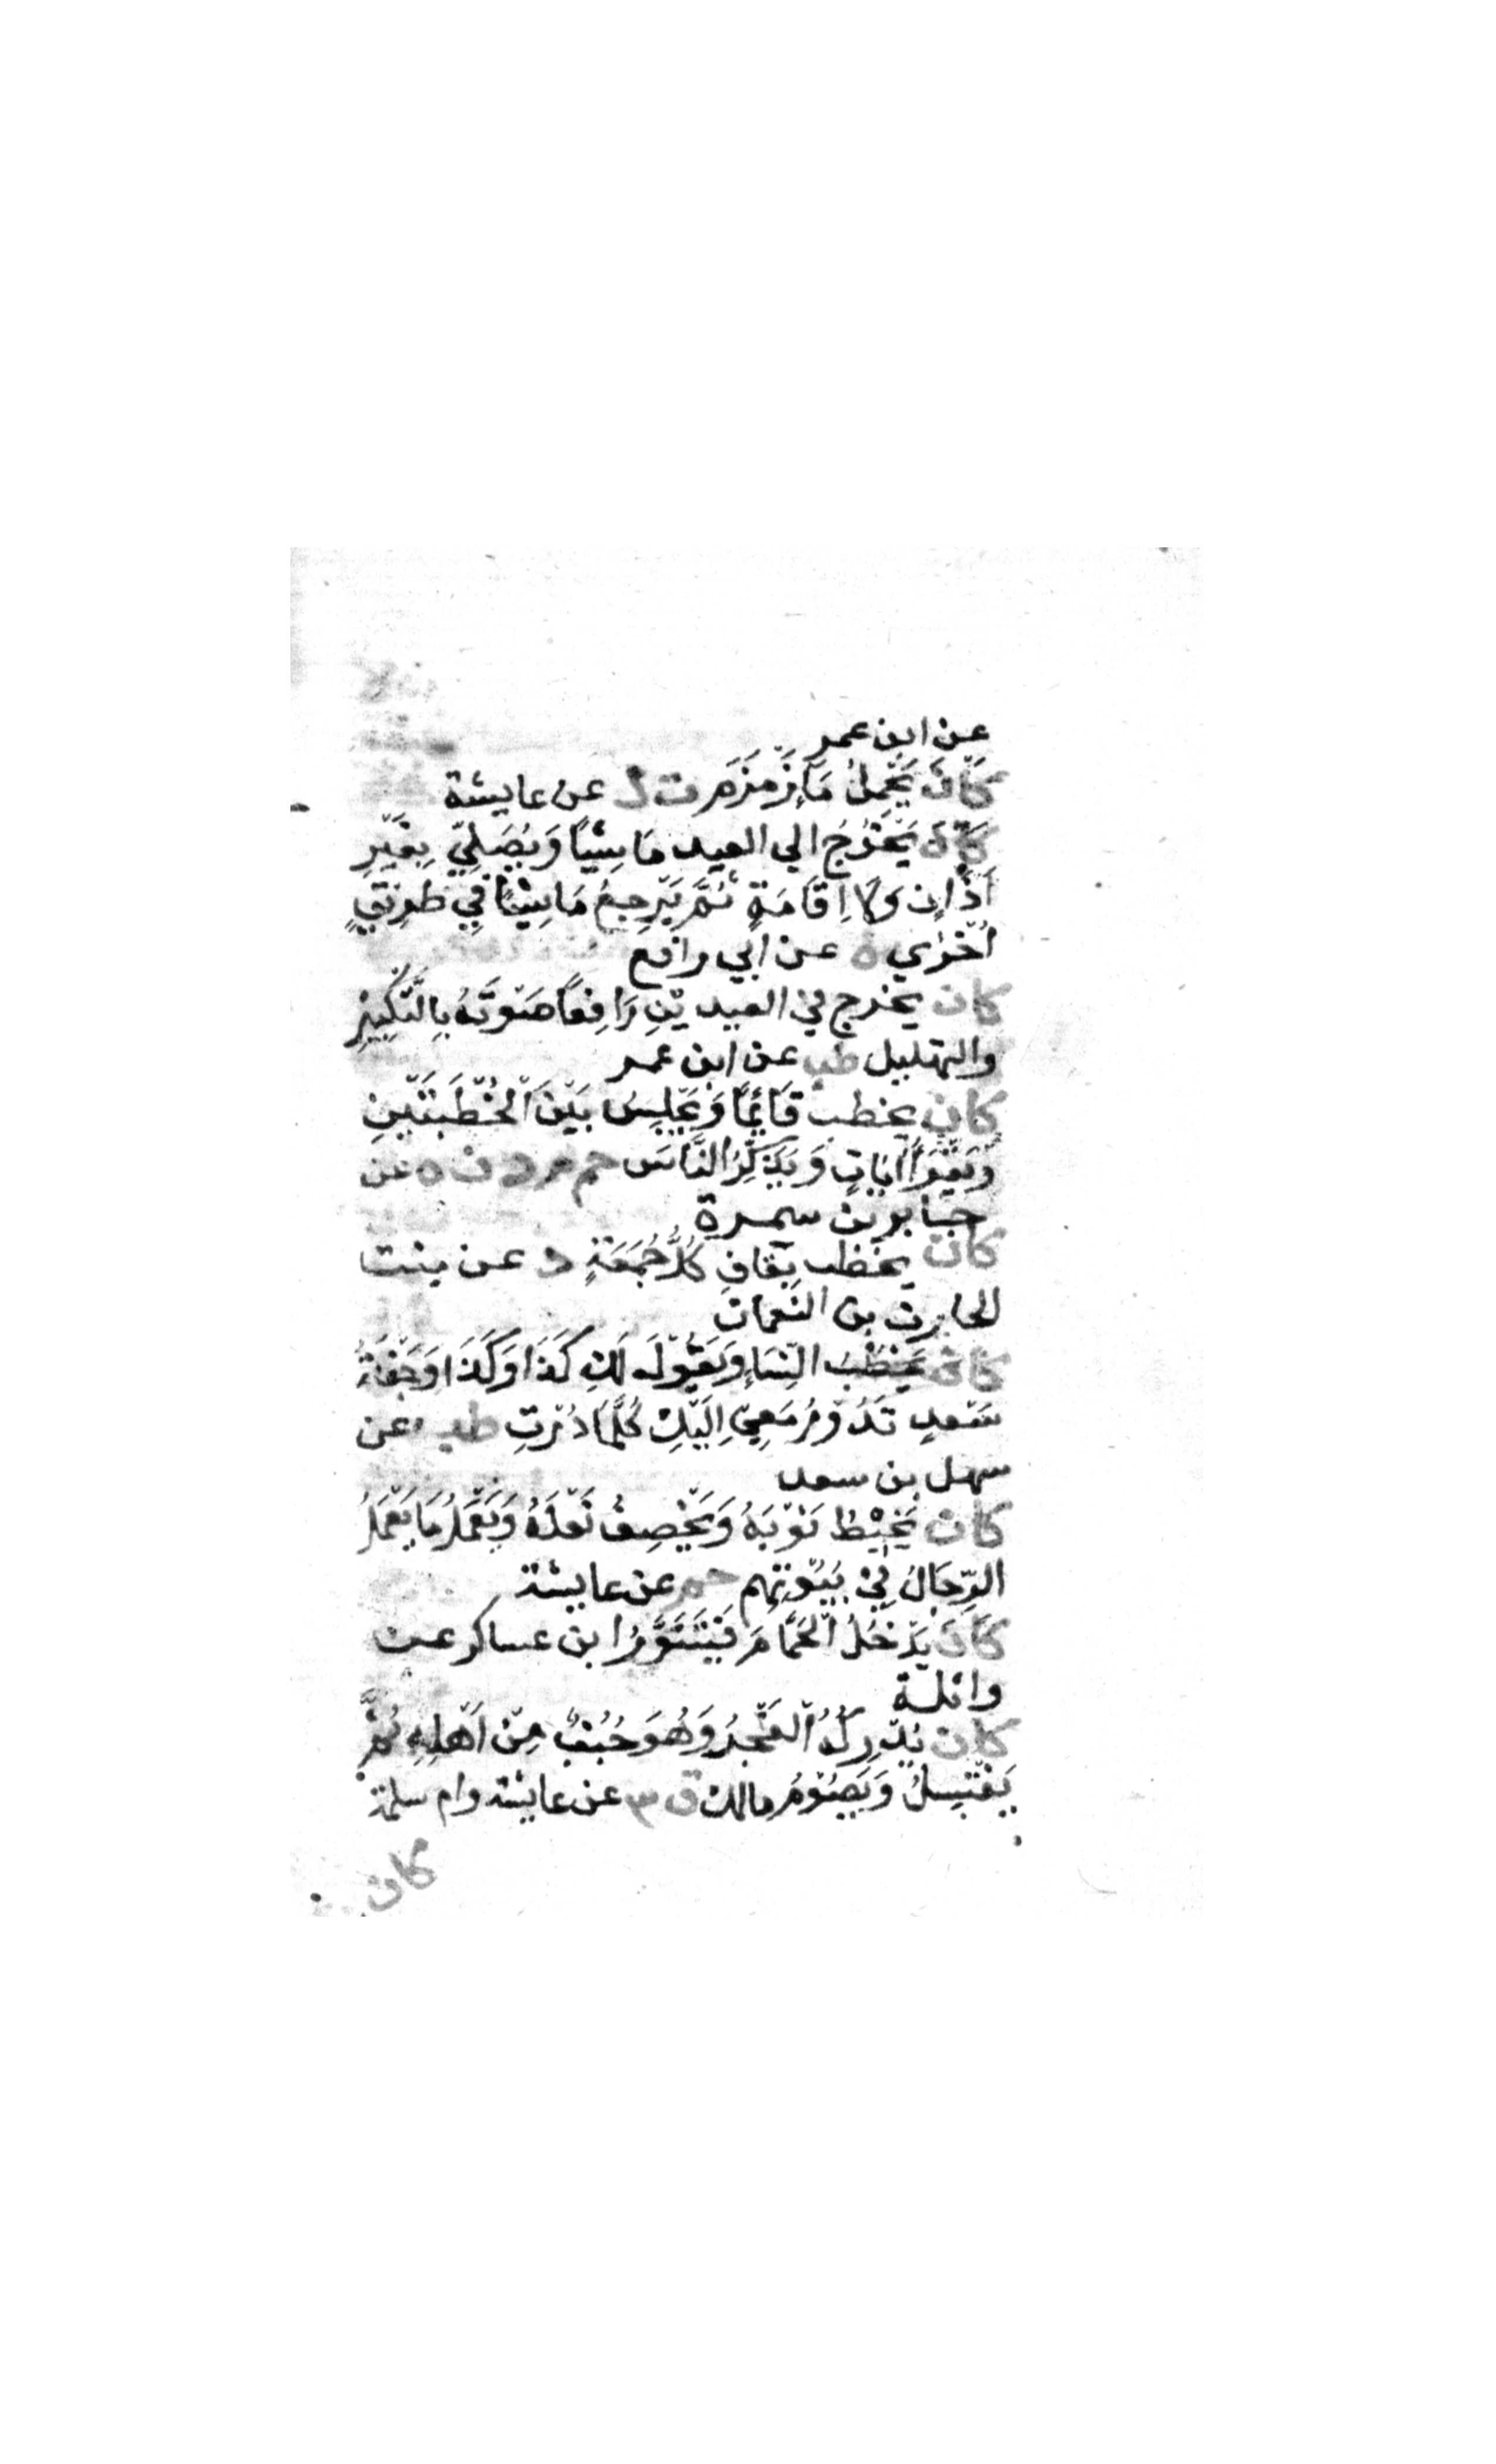 عن ابن عمر
كَانَ يَحْمِلُ مَآءَ زَمْزَمَ ت ك عن عايشة
كَانَ يَخْرُجُ الي العيد مَاشِيًا وَيُصَلِّيْ بِغَيْرِ
اَذَانٍ وَلَا اِقَامَةٍ ثُمَّ يَرْجِعُ مَاشِيًا فِيْ طَرِيْقٍ
اُخْرٰي ه عن ابي رافع
كان يخرج في العيديْنِ رَافِعًا صَوْتَهُ بِالتَّكْبِيْرِ
والتهليل طب عن ابن عمر
كان يخطب قَآئِمًا وَيَجْلِسُ بَيْنَ الْخُطْبَتَيْنِ
وَيَقْرَأُ اٰيَاتٍ وَيُذَكِّرُ النَّاسَ حم م د ن ه عن
جابر بن سمرة
كان يخطب بِقَافٍ كُلَّ جُمَعَةٍ د عن بنت
الحارث بن النعمان
كان يَخْطُبُ النِّسَاءَ وَيَقُوْلُ لَكِ كَذَا وَكَذَا وَجَفْنَةُ
سَعدٍ تَدُوْرُ مَعِيْ اِلَيْكِ كُلَّمَا دُرْتِ طب عن
سهل بن سعد
كان يَخِيْطُ ثَوْبَهُ وَيَخْصِفُ نَعْلَهُ وَيَعْمَلُ مَا يَعْمَلُ
الرِّجَالُ فِيْ بُيُوْتِهِم حم عن عايشة
كَانَ يَدْخُلُ الْحَمَّامَ فَيَتَنَوَّرُ ابن عساكر عن
واثلة
كان يُدْرِكُهُ الْفَجْرُ وَهُوَ جُنُبٌ مِنْ اَهْلِهِ ثُمَّ
يَغْتَسِلُ وَيَصُوْمُ مالك ق ٣ عن عايشة وام سلمة
كان